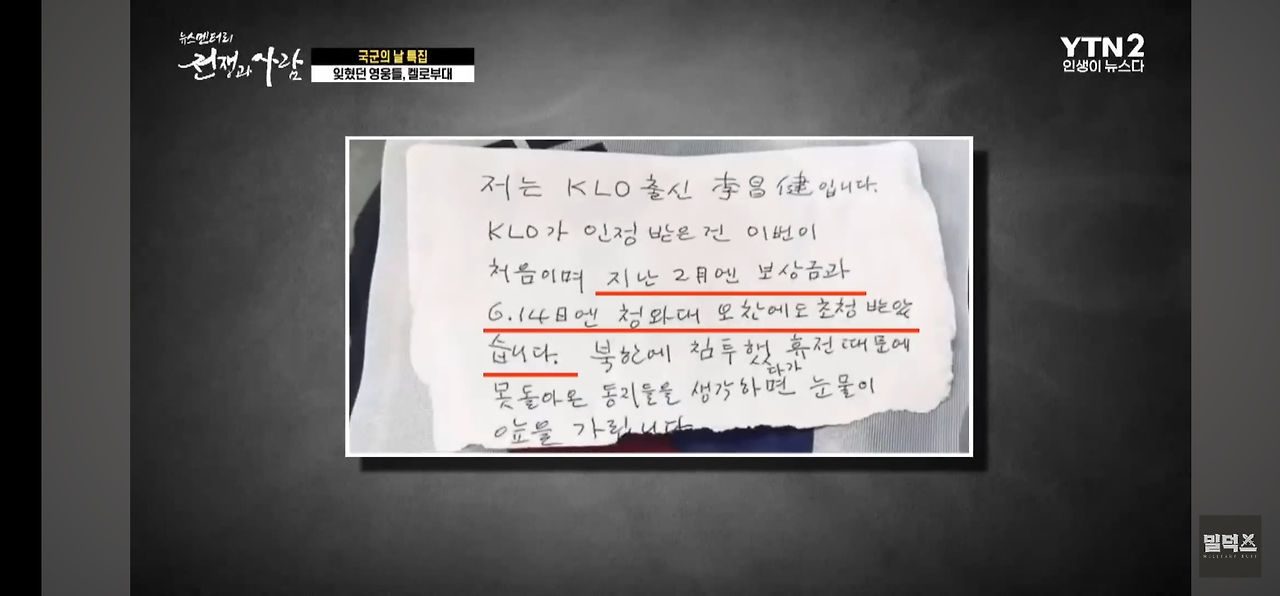 뉴스멘터리
전쟁과 사람
국군의 날 특집
잊혔던 영웅들, 켈로부대
YTN2
인생이 뉴스다
저는 KLO 출신 李昌健입니다.
KLO가 인정 받은건 이번이
처음이며 지난 2月엔 보상금과
6.14日엔 청와대 오찬에도 초청 받았
습니다. 북한에 침투했다가 휴전때문에
못돌아온 동지들을 생각하면 눈물이
앞을 가립니다
밀덕스